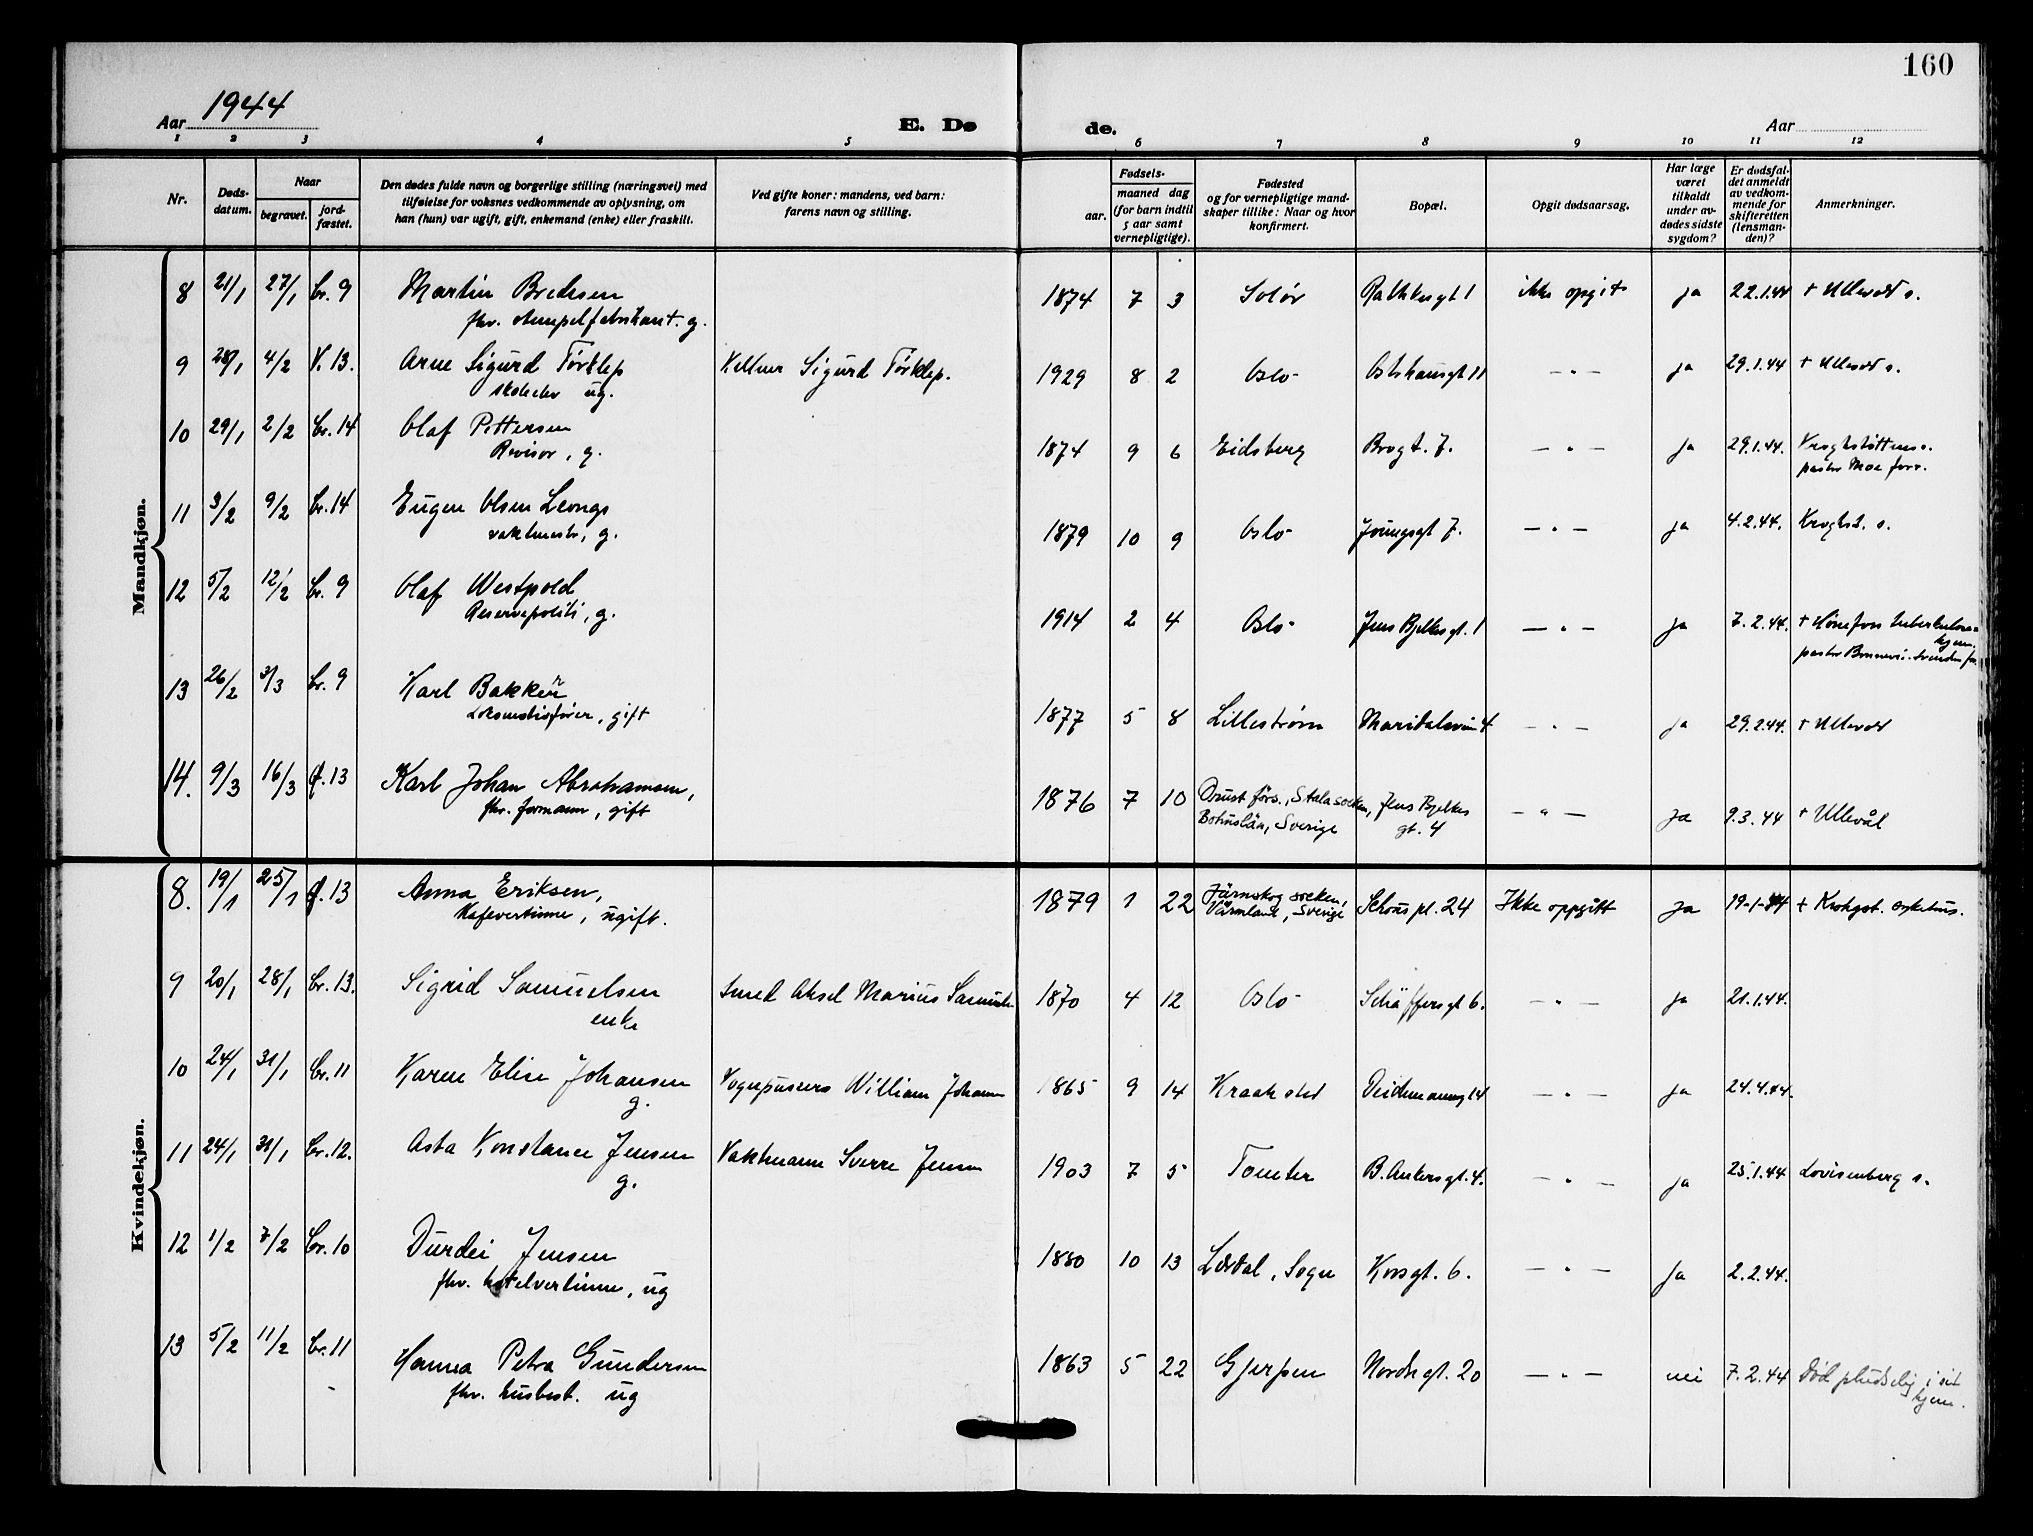 160
Aar 1944
E. Dø
de.
Aar
1 2 3 4 5 6 7 8 9 10 11 12
Nr.
Døds-
datum.
Naar
begravet.
jord-
fæstet.
Den dødes fulde navn og borgerlige stilling (næringsvei) med
tilføielse for voksnes vedkommende av oplysning, om
han (hun) var ugift, gift, enkemand (enke) eller fraskilt.
Ved gifte koner: mandens, ved barn:
farens navn og stilling.
Fødsels-
aar.
maaned dag
(for barn indtil
5 aar samt
vernepligtige).
Fødested
og for vernepligtige mand-
skaper tillike: Naar og hvor
konfirmert.
Bopæl.
Opgit dødsaarsag.
Har læge
været
tilkaldt
under av-
dødes sidste
sygdom?
Er dødsfal-
det anmeldt
av vedkom-
mende for
skifteretten
(lensman-
den)?
Anmerkninger.
Mandkjøn.
8 21/1 27/1 Cr. 9 Martin Bredesen 1874 7 3 Solør Rathkesgt 1 ikke opgit ja 22.1.44 + Ullevål s.
fhv. stempelfabrikant. g.
9 28/1 4/2 V. 13. Arne Sigurd Tørklep Kelner Sigurd Tørklep. 1929 8 2 Oslo Ostshausgt 11 — " — ja 29.1.44 + Ullevål s.
skoleelev ug.
10 29/1 2/2 Cr. 14 Olaf Pettersen 1874 9 6 Eidsberg Brogt. 7. — " — ja 29.1.44. Kroghstøttens s.
Revisor, g. pastor Moe forr.
11 3/2 9/2 Cr. 14 Eugen Olsen Leongs 1879 10 9 Oslo Youngsgt 7. — " — ja 4.2.44. Kroghst. s.
vaktmester, g.
12 5/2 12/2 Cr. 9 Olaf Westpold 1914 2 4 Oslo Jens Bjelkesgt. 1 — " — ja 7.2.44. + Hønefoss tuberkulose-
Reservepoliti, g. hjem.
pastor
13 26/2 3/3 Cr. 9 Karl Bakken 1877 5 8 Lillestrøm Maridalsvin 4 — " — ja 29.2.44. + Ullevål
Lokomotivfører, gift
14. 9/3 16/3 f. 13 Karl Johan Abrahamsen, 1876 7 10 Orust förs., Stala socken, Jens Bjelkes — " — Ja 9.3.44 + Ullevål
fhv. formann, gift Bohuslän, Sverige gt. 4
Kvindekjøn.
8. 19/1 25/1 f. 13 Anna Eriksen, 1879 1 22 Järnskog socken, Schous pl. 24 Ikke oppgitt Ja 19-1-44 + Krohgst. sykehus.
Kafevertinne, ugift. Värmland, Sverige
9 20/1 28/1 Cr. 13. Sigrid Samuelsen Smed Aksel Marius Samuels. 1870 4 12 Oslo Schäffersgt 6. — " — ja 21.1.44.
enke
10 24/1 31/1 Cr. 11 Karen Elise Johansen Vognpusser William Johansen 1865 9 14 Kraakstad Deichmannsgt 14 — " — ja 24.4.44.
g.
11 24/1 31/1 Cr. 12. Asta Konstance Jensen Vaktmann Sverre Jensen 1903 7 5 Tomter B. Ankersgt. 4. — " — ja 25.1.44 Lovisenberg s.
g.
12 1/2 7/2 Cr. 10 Durdei Jensen 1880 10 13 Lærdal, Sogn Korsgt. 6. — " — Ja 2.2.44.
fhv. hotelvertinne, ug
13 5/2 11/2 Cr. 11 Hanna Petra Gundersen 1863 5 22 Gjerpen Nordregt. 20 — " — nei 7.2.44 Død pludselig i sit
fhv. husbest. ug hjem.